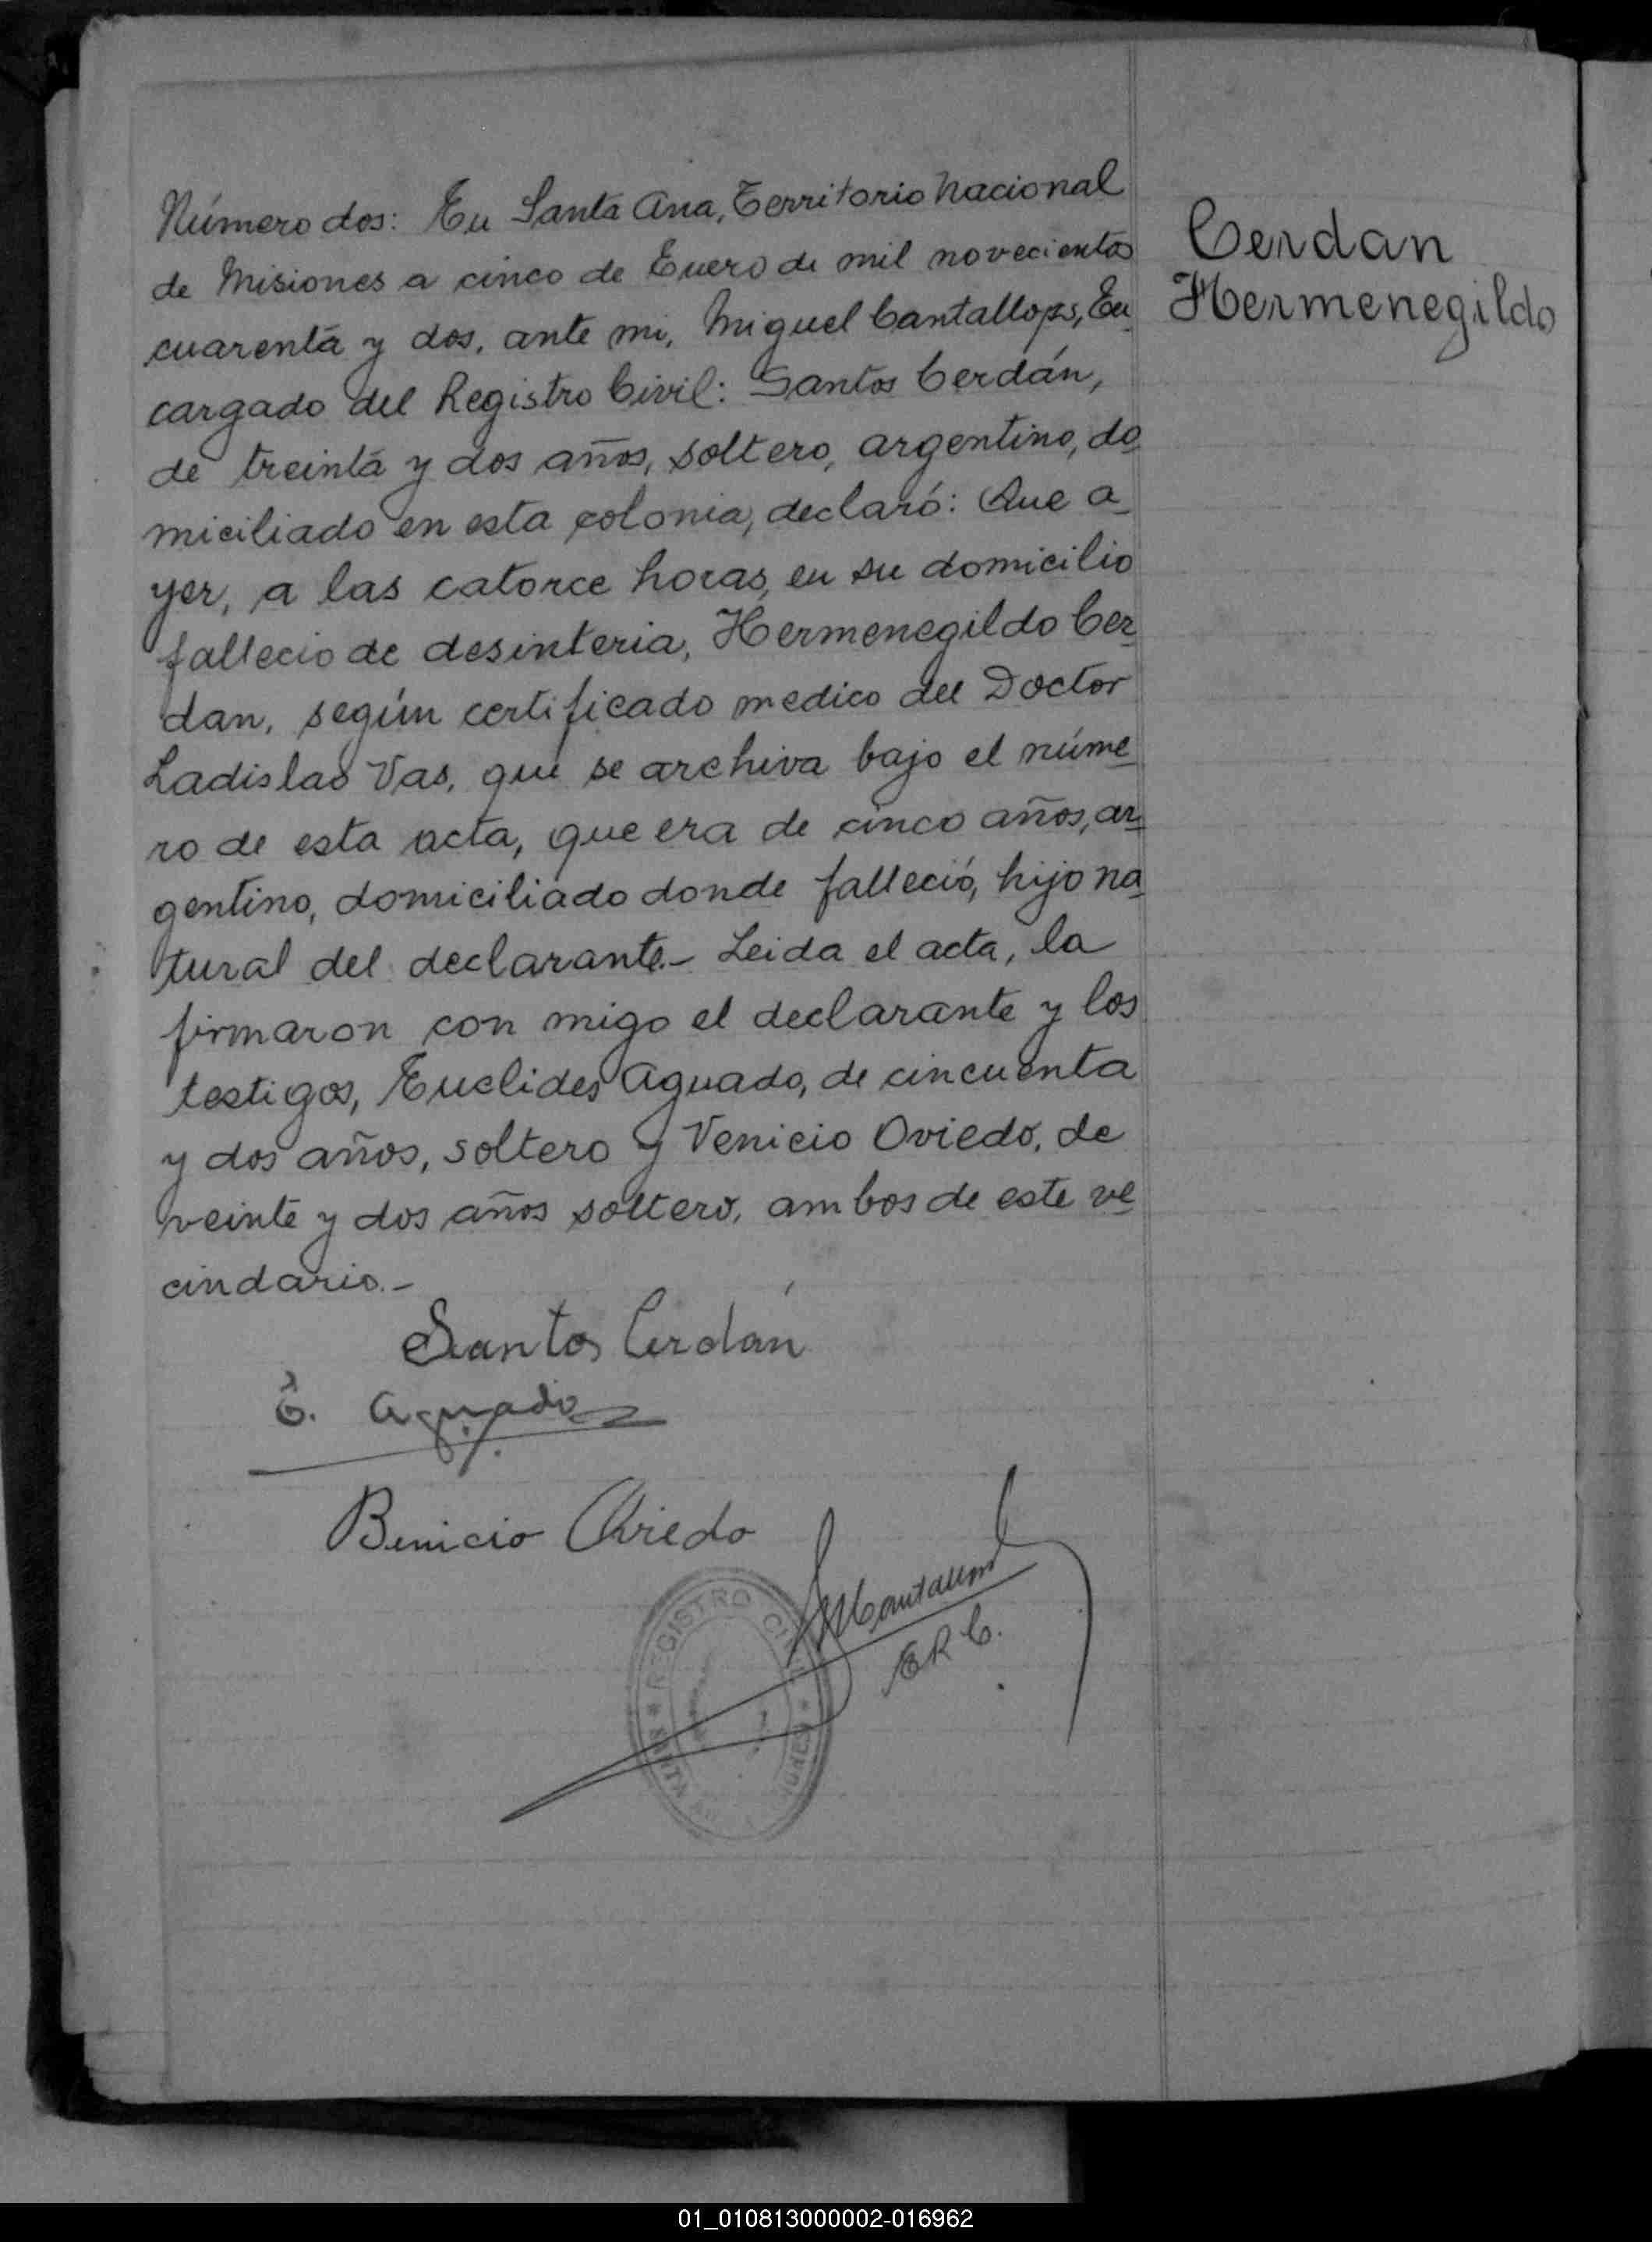 Número dos: En Santa Ana, Territorio Nacional
de Misiones a cinco de Enero de mil novecientos
cuarenta y dos, ante mi, Miguel Cantallops, En
cargado del Registro Civil: Santos Cerdán,
de treinta y dos años, soltero, argentino, do
miciliado en esta colonia, declaró: Que a
yer, a las catorce horas, en su domicilio
fallecio de desinteria, Hermenegildo Cer
dan, según certificado medico del Doctor
Ladislao Vas, que se archiva bajo el núme
ro de esta acta, que era de cinco años, ar
gentino, domiciliado donde falleció, hijo na
tural del declarante.- Leida el acta, la
firmaron con migo el declarante y los
testigos, Euclides Aguado, de cincuenta
y dos años, soltero y Venicio Oviedo, de
veinte y dos años soltero, ambos de este ve
cindario.-
Cerdan
Hermenegildo
Santos Cerdán
E. Aguado
Benicio Oviedo
MCantallops
E R C.
REGISTRO CIVIL
SANTA
01_010813000002-016962